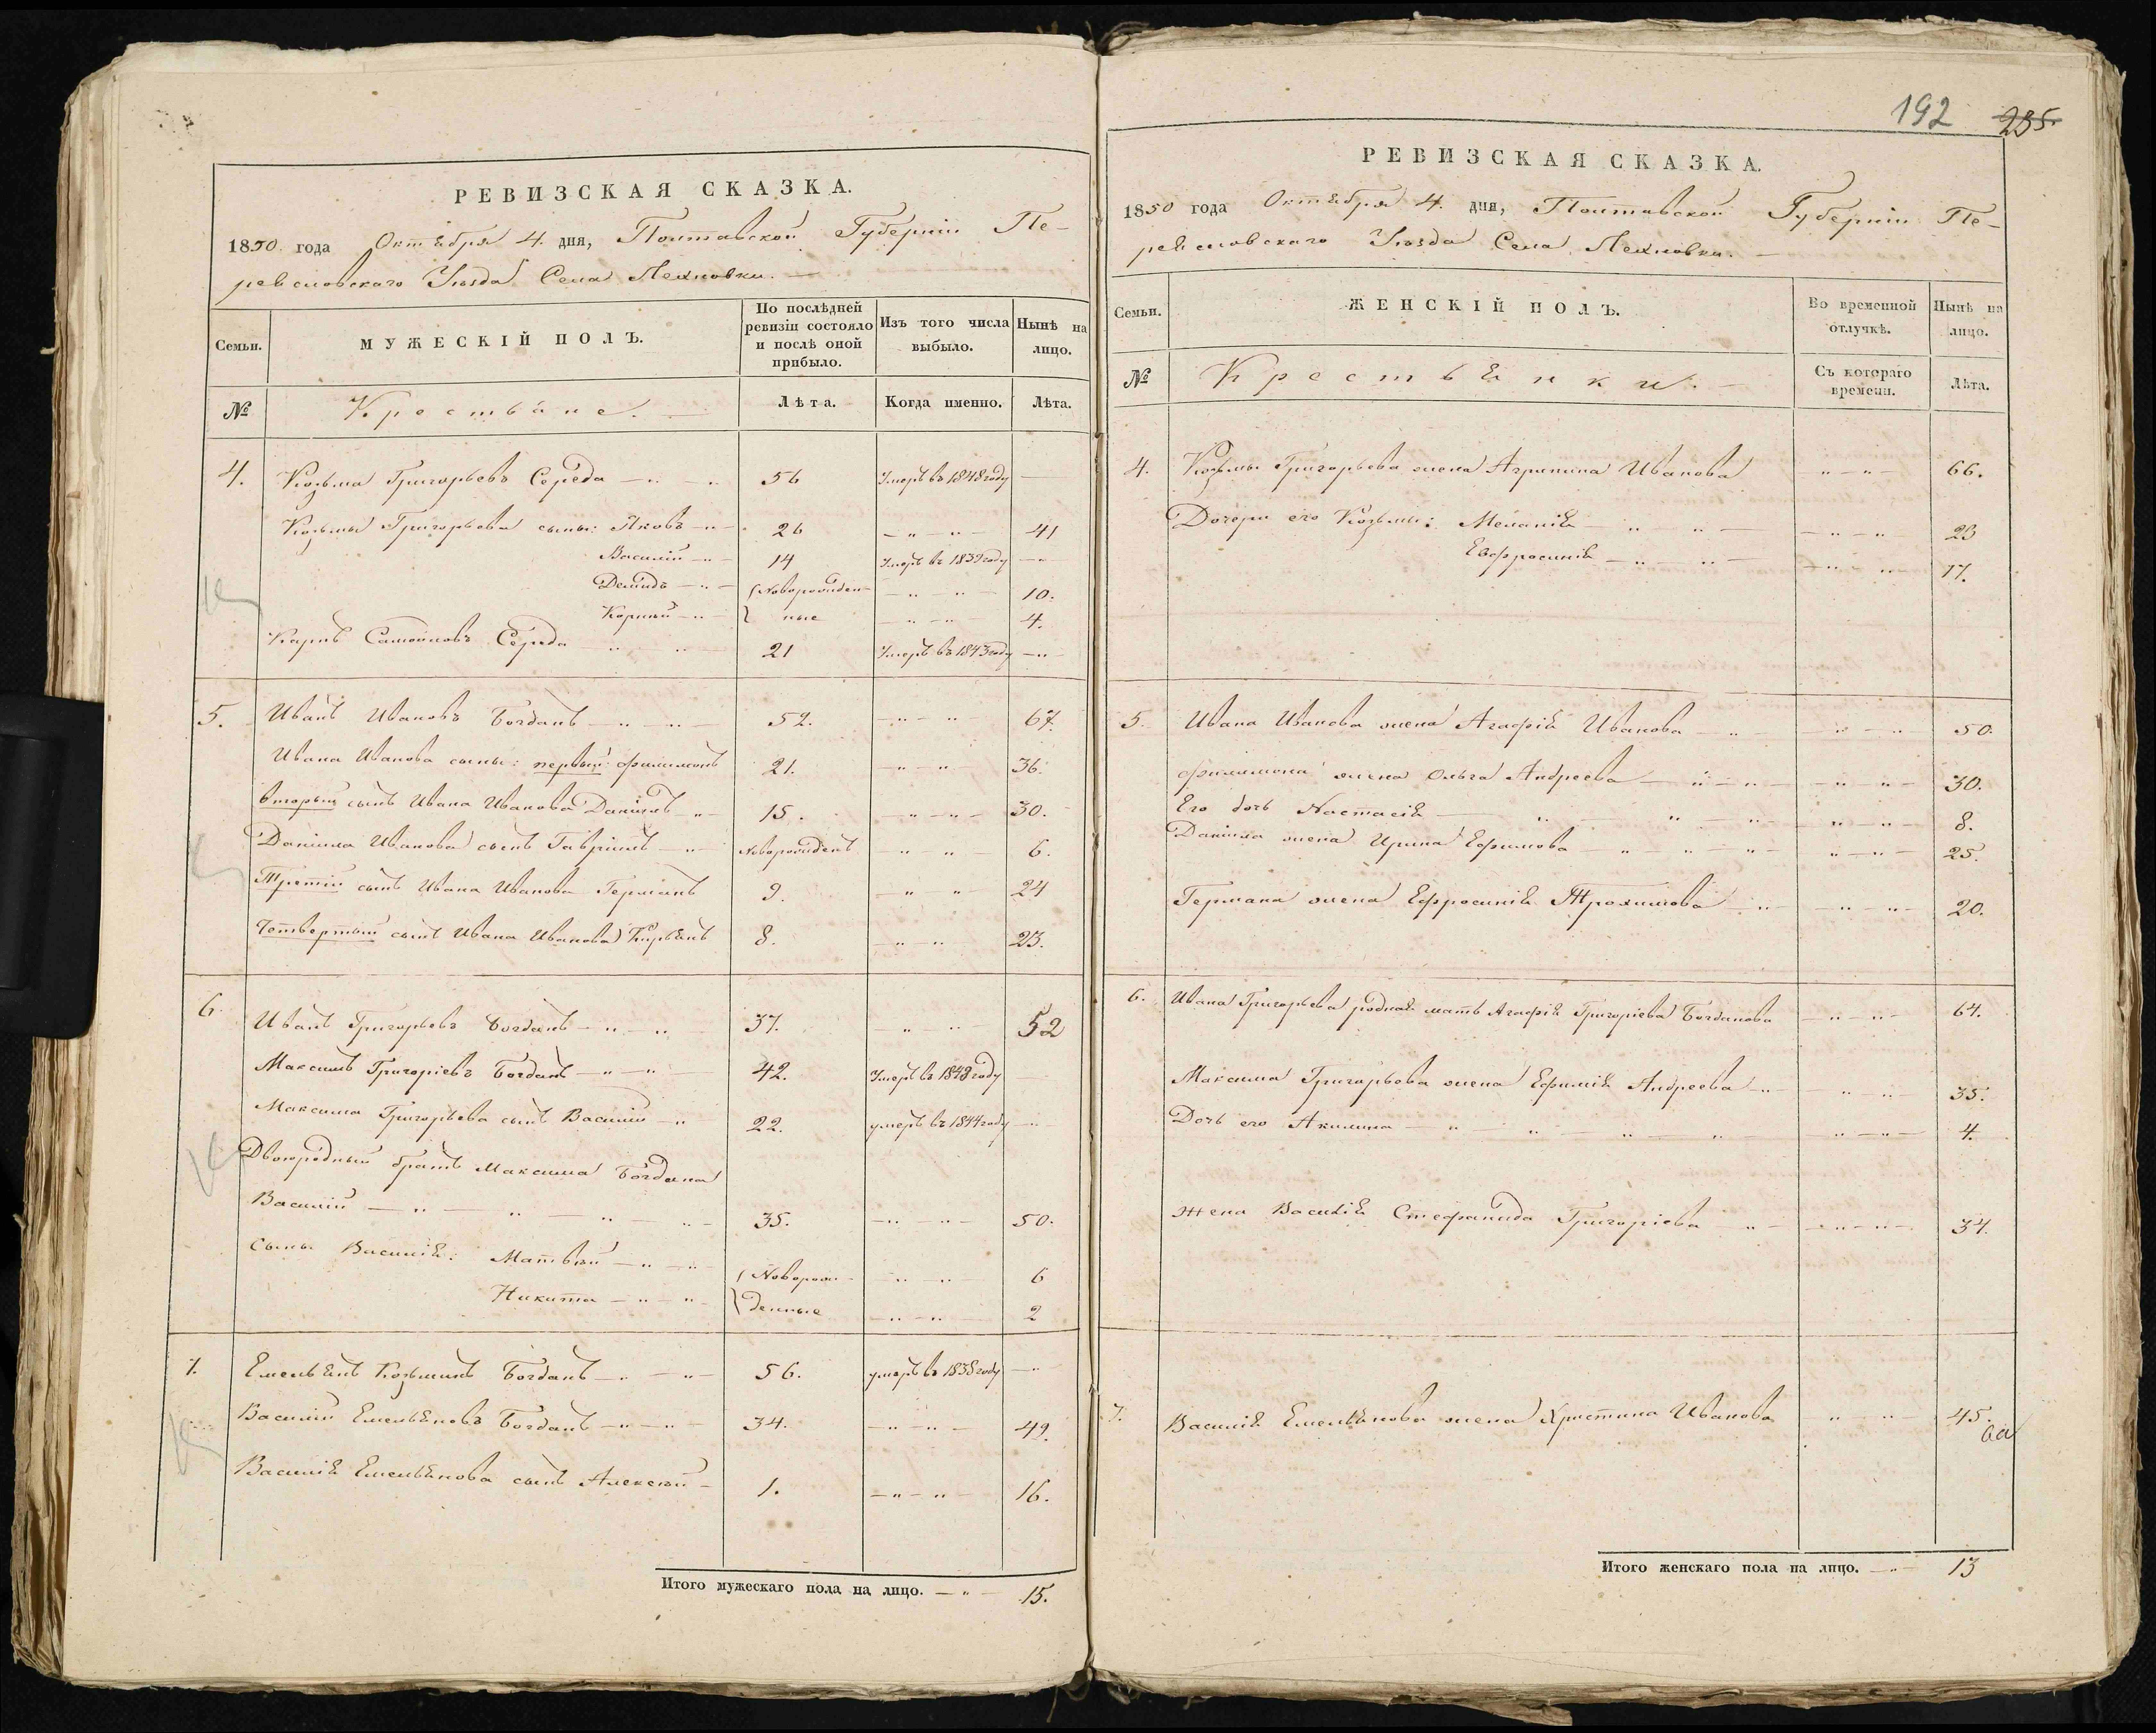 РЕВИЗСКАЯ СКАЗКА.
1850 года Октября 4. дня, Полтавской Губерніи Пе-
реяславскаго Уѣзда Села Лехновки.
Семьи.
МУЖЕСКІЙ ПОЛЪ.
По послѣдней ревизіи состояло и послѣ оной прибыло.
Изъ того числа выбыло.
Нынѣ на лицо.
№
Крестьяне.
Лѣта.
Когда именно.
Лѣта.
4. Козьма Григорьевъ Середа 56 Умеръ въ 1848 году
Козьмы Григорьева сыны: Яковъ 26 41
Василій 14 Умеръ въ 1839 году
Демидъ Новорожден- 10.
Корнѣй ные 4.
Карпъ Самойловъ Середа 21 Умеръ въ 1843 году
5. Иванъ Ивановъ Богданъ 52. 67.
Ивана Иванова сыны: первый: Филимонъ 21. 36.
вторый сынъ Ивана Иванова Даніилъ 15. 30.
Даніила Иванова сынъ Гавріилъ Новорожденъ 6.
Третій сынъ Ивана Иванова Германъ 9. 24
Четвертый сынъ Ивана Иванова Кирьянъ 8. 23.
6. Иванъ Григорьевъ Богданъ 37. 52
Максимъ Григоріевъ Богданъ 42. Умеръ въ 1848 году
Максима Григорьева сынъ Василій 22. умеръ въ 1844 году
Двоюродный братъ Максима Богдана
Василій 35. 50.
Сыны Василія: Матвѣй Новорож- 6
Никита денные 2
7. Емельянъ Козьминъ Богданъ 56. умеръ въ 1838 году
Василій Емельяновъ Богданъ 34. 49.
Василія Емельянова сынъ Алексѣй 1. 16.
Итого мужескаго пола на лицо. 15.
192 235.
РЕВИЗСКАЯ СКАЗКА.
1850 года Октября 4. дня, Полтавской Губерніи Пе-
реяславскаго Уѣзда Села Лехновки.
Семьи.
ЖЕНСКІЙ ПОЛЪ.
Во временной отлучкѣ.
Нынѣ на лицо.
№
Крестьянки.
Съ котораго времени.
Лѣта.
4. Козьмы Григорьева жена Агрипина Иванова 66.
Дочери его Козьмы: Меланія 23
Евфросинія 17.
5. Ивана Иванова жена Агафія Иванова 50.
Филимона жена Ольга Андреева 30.
Его дочь Настасія 8.
Даніила жена Ирина Ефимова 25.
Германа жена Ефросинія Трохимова 20.
6. Ивана Григорьева родная мать Агафія Григоріева Богданова 64.
Максима Григорьева жена Ефимія Андреева 35.
Дочь его Акилина 4.
Жена Василія Стефанида Григоріева 34.
7. Василія Емельянова жена Христина Иванова 45.
Итого женскаго пола на лицо. 13